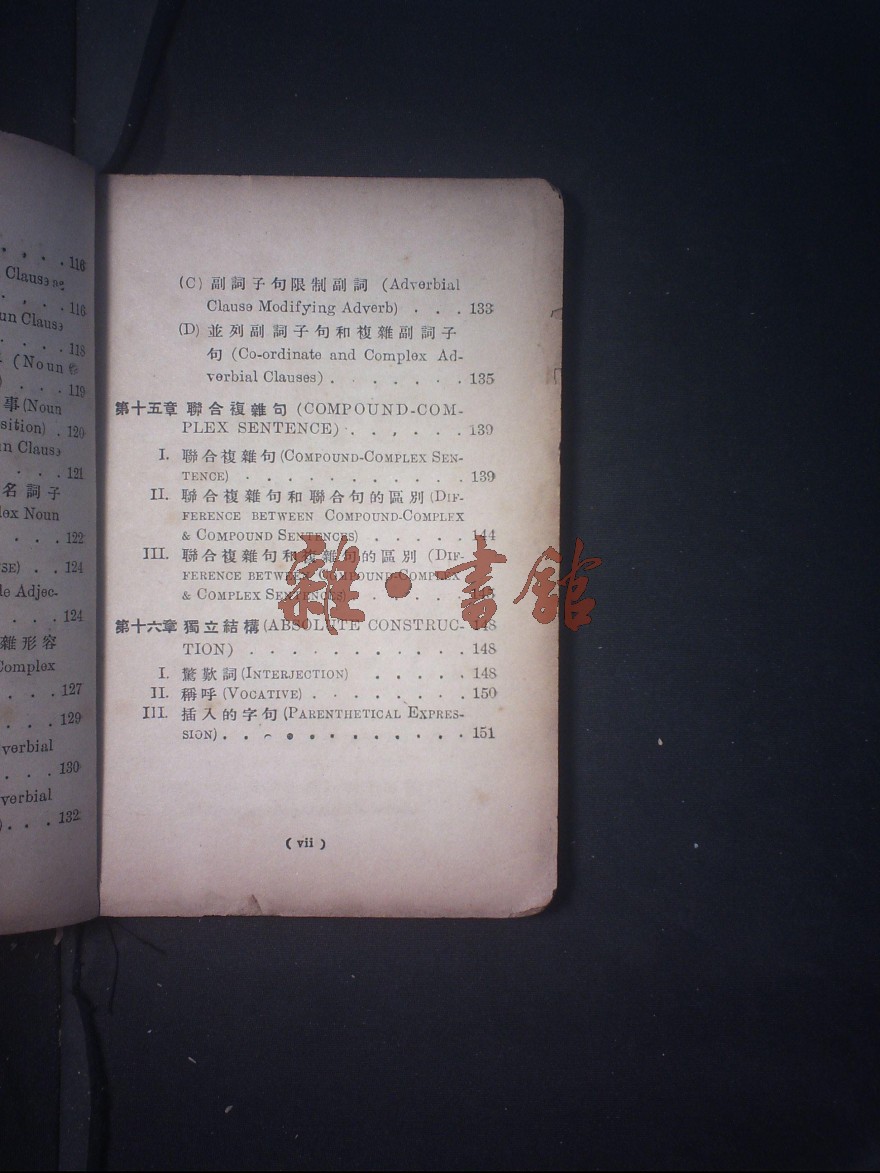 116
Clause as
116
un Clause
118
(Noun
119
事(Noun
sition) . 120
n Clause
121
名詞子
lex Noun
122
SE) . . 124
le Adjec-
124
雜形容
Complex
127
129
verbial
130
verbial
132
(C) 副詞子句限制副詞 (Adverbial
Clause Modifying Adverb) . . . 133
(D) 並列副詞子句和複雜副詞子
句 (Co-ordinate and Complex Ad-
verbial Clauses) . . . . . . . 135
第十五章 聯合複雜句 (COMPOUND-COM-
PLEX SENTENCE) . . , . . . 139
I. 聯合複雜句 (COMPOUND-COMPLEX SEN-
TENCE) . . . . . . . . . . . 139
II. 聯合複雜句和聯合句的區別 (DIF-
FERENCE BETWEEN COMPOUND-COMPLEX
& COMPOUND SENTENCES) . . . . . 144
III. 聯合複雜句和複雜句的區別 (DIF-
FERENCE BETWEEN COMPOUND-COMPLEX
& COMPLEX SENTENCES) . . . . .
雜·書館
第十六章 獨立結構 (ABSOLUTE CONSTRUC- 148
TION) . . . . . . . . . . . 148
I. 驚歎詞 (INTERJECTION) . . . . . 148
II. 稱呼 (VOCATIVE) . . . . . . . . 150
III. 插入的字句 (PARENTHETICAL EXPRES-
SION) . . . . . . . . . . . . 151
( vii )